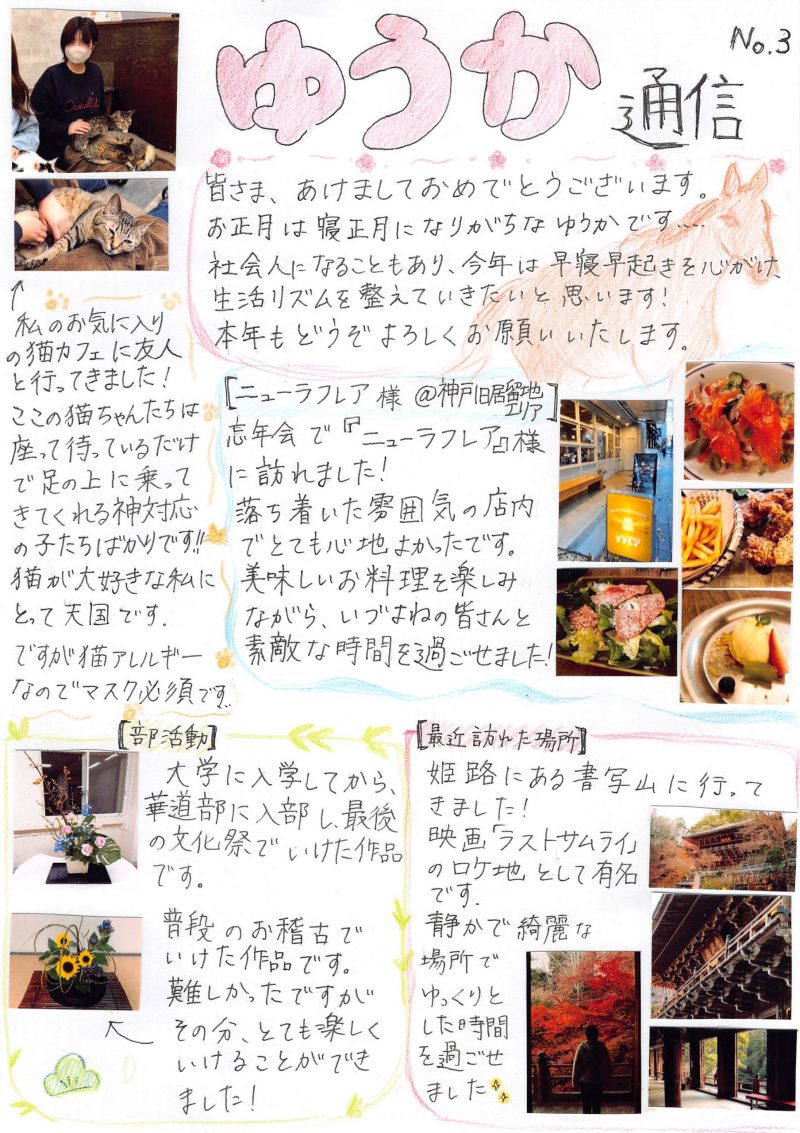 No.3
ゆうか
通信
皆さま、あけましておめでとうございます。
お正月は寝正月になりがちなゆうかです.....
社会人になることもあり、今年は早寝早起きを心がけ、
生活リズムを整えていきたいと思います!
本年もどうぞよろしくお願いいたします。
↑
私のお気に入り
の猫カフェに友人
と行ってきました!
ここの猫ちゃんたちは
座って待っているだけ
で足の上に乗って
きてくれる神対応
の子たちばかりです!!
猫が大好きな私に
とって天国です.
ですが猫アレルギー
なのでマスク必須です..
[ニューラフレア様 @神戸旧居留地
エリア]
忘年会で『ニューラフレア』様
に訪れました!
落ち着いた雰囲気の店内
でとても心地よかったです。
美味しいお料理を楽しみ
ながら、いづよねの皆さんと
素敵な時間を過ごせました!
[部活動]
大学に入学してから、
華道部に入部し、最後
の文化祭でいけた作品
です。
普段のお稽古で
いけた作品です。
難しかったですが
その分、とても楽しく
いけることができ
ました!
[最近訪れた場所]
姫路にある書写山に行って
きました!
映画「ラストサムライ」
のロケ地として有名
です.
静かで綺麗な
場所で
ゆっくりと
した時間
を過ごせ
ました